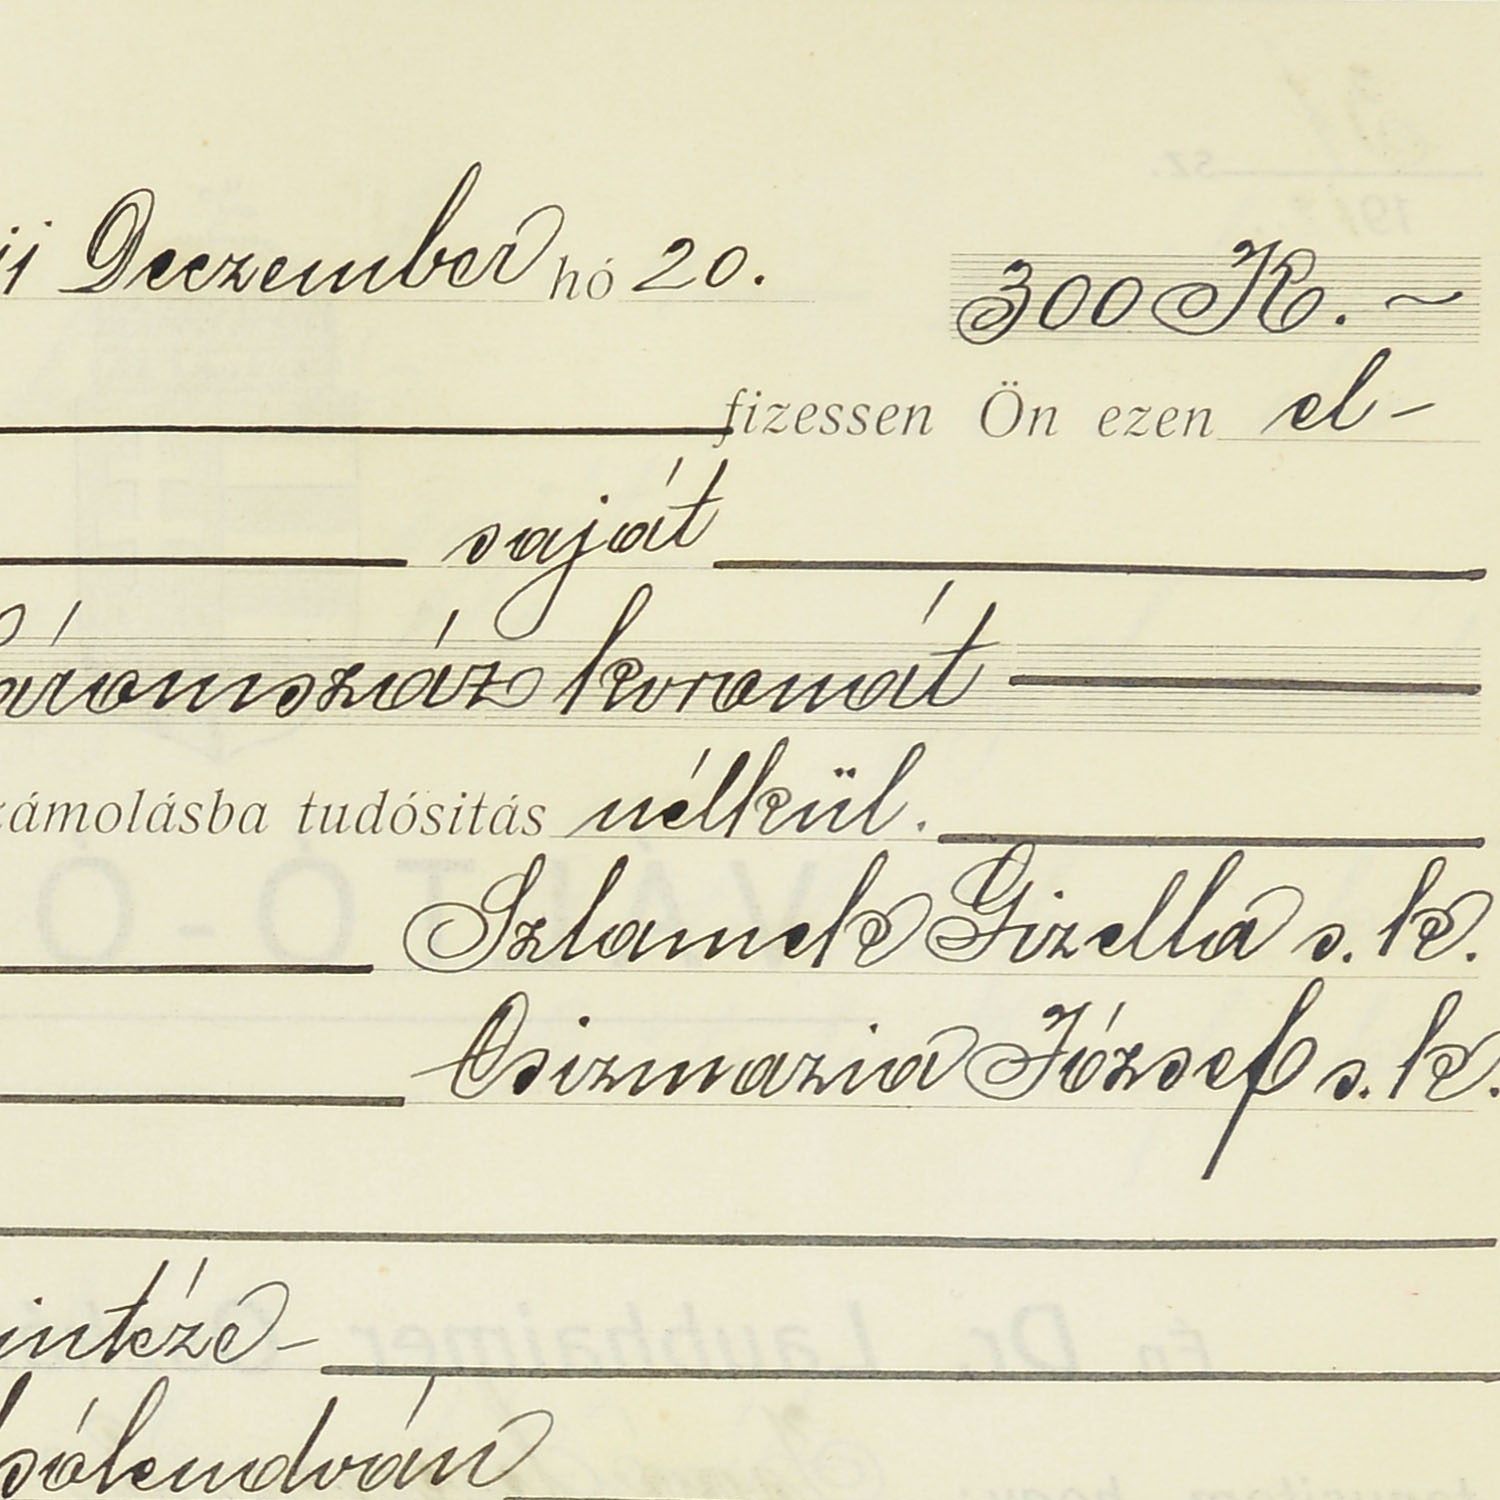 Deczember hó 20. 300 K. ~
fizessen Ön ezen el-
saját
áromszáz koronát
zámolásba tudósitás nélkül.
Szlamek Gizella s. k.
Csizmazia József s. k.
intéze-
sólendván